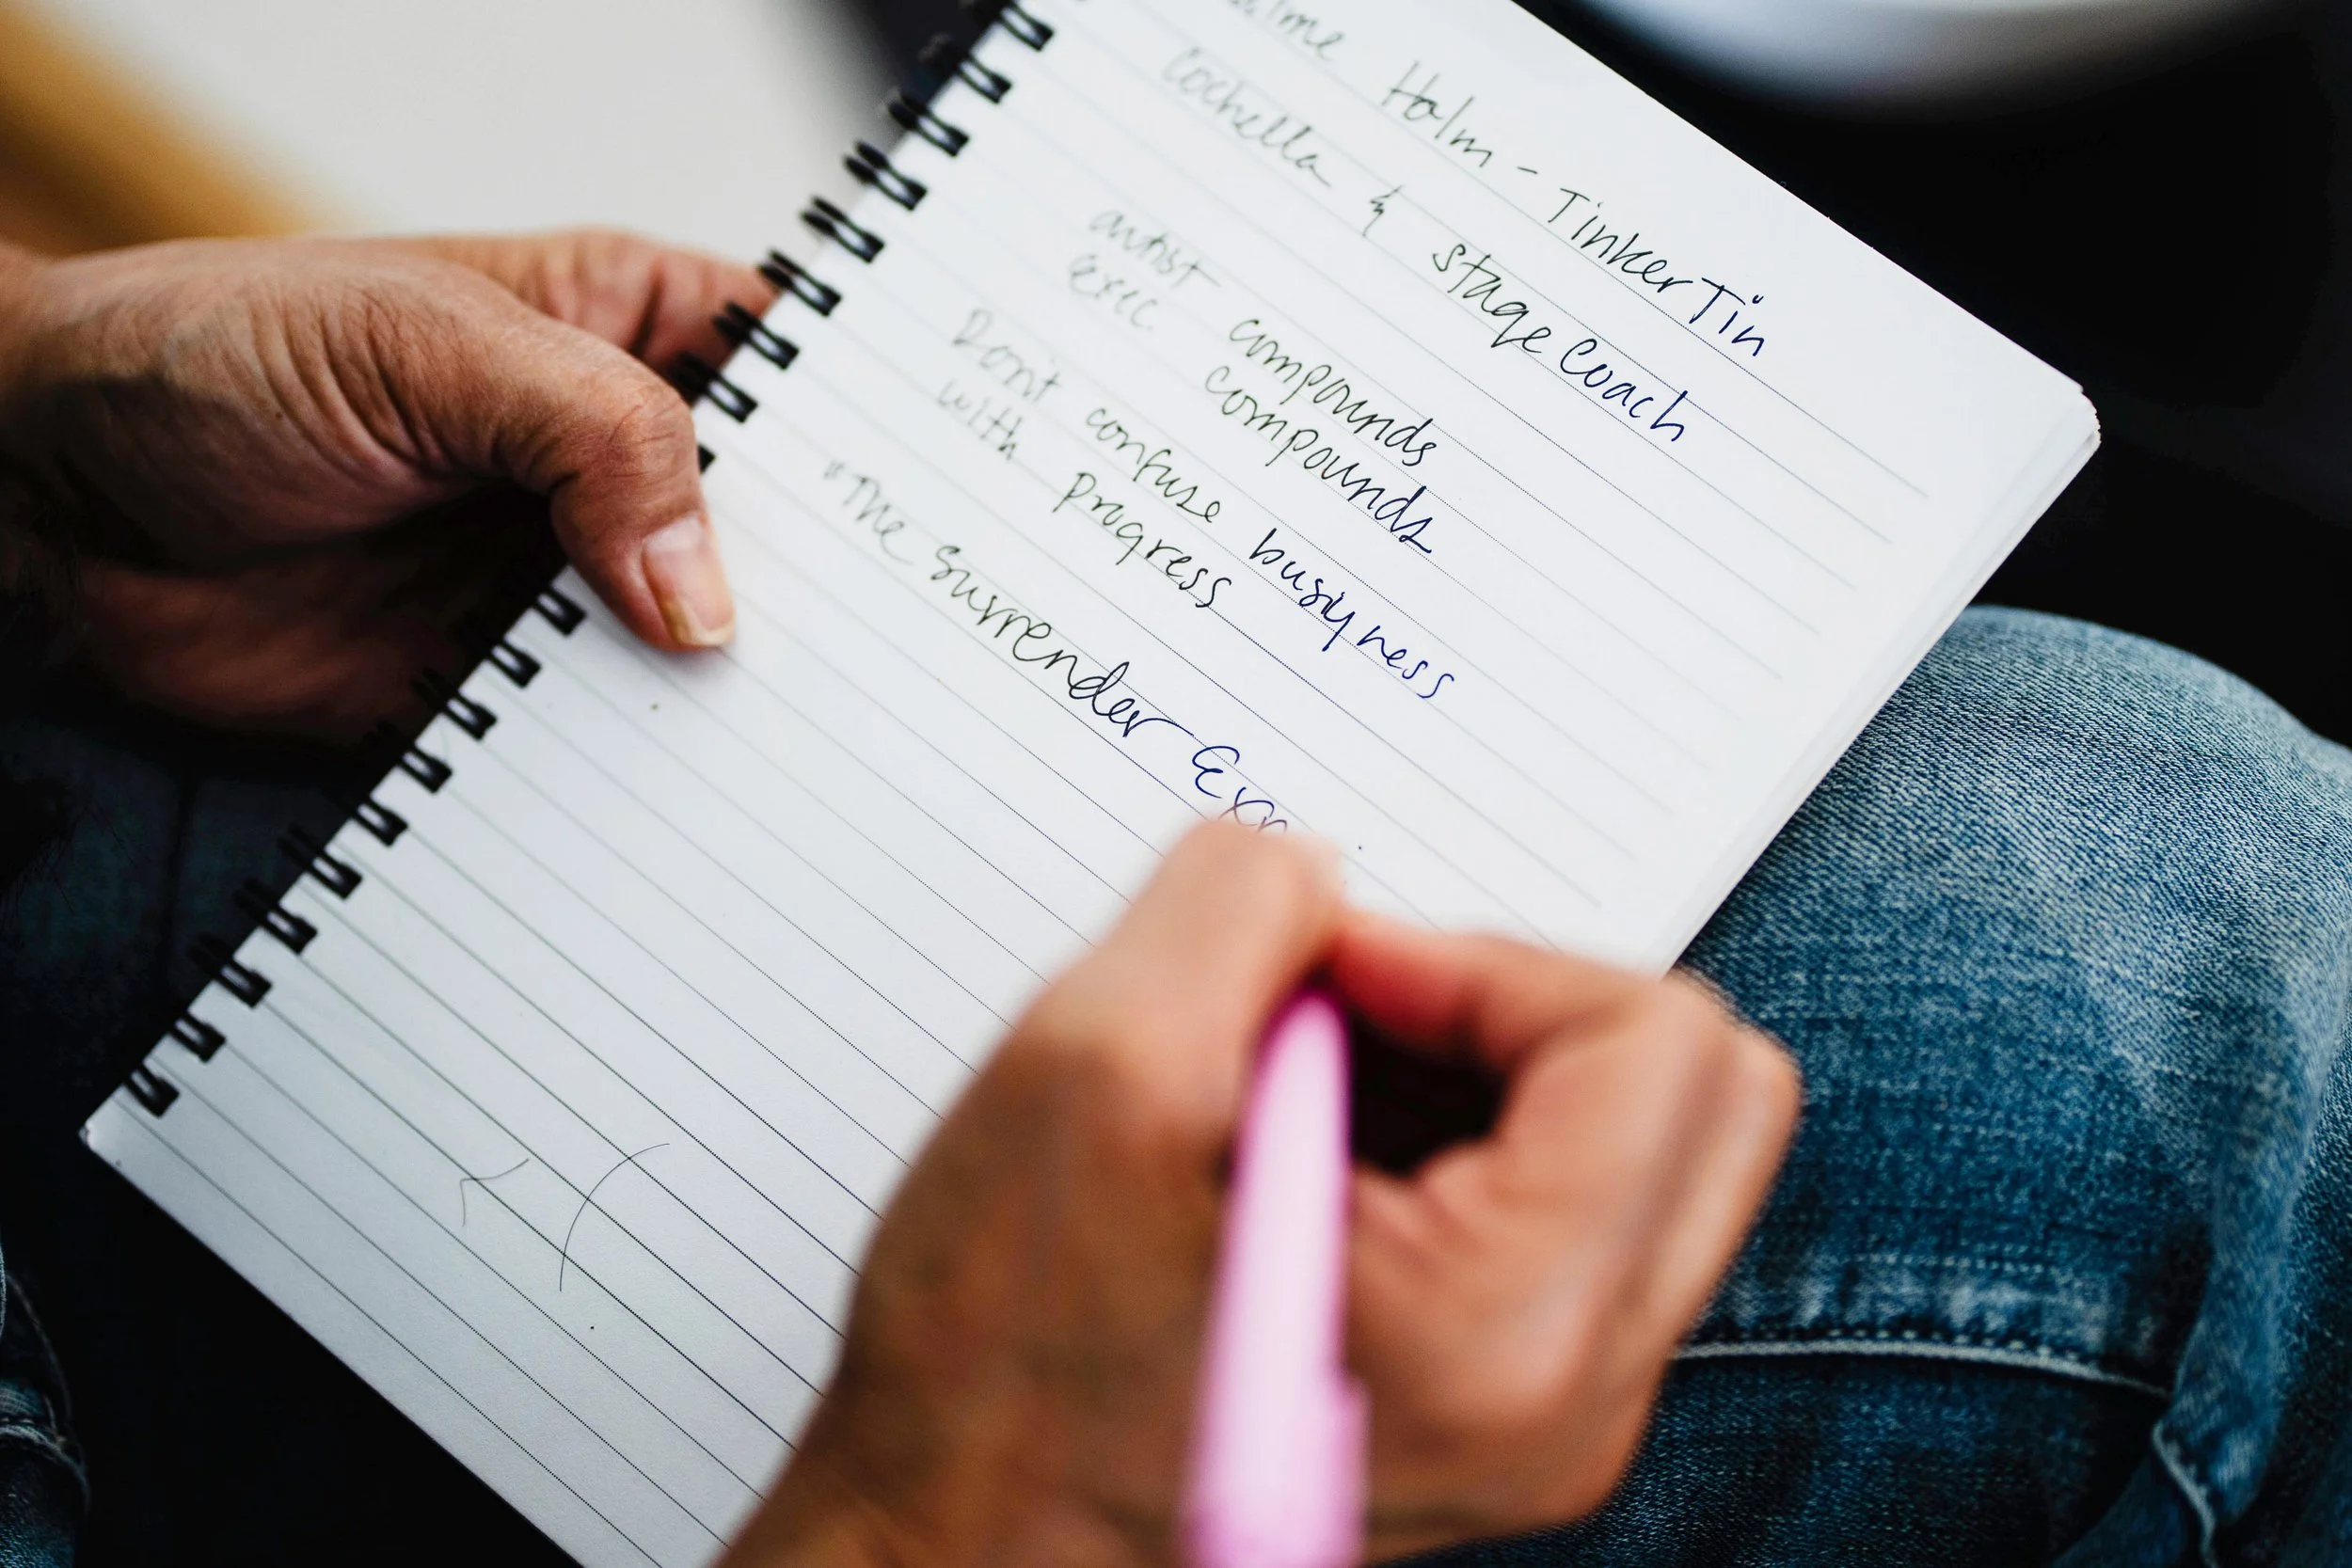 Holm - TinkerTin
Cochella & StageCoach
artist compounds
exec. compounds
Don't confuse busyness
with progress
"The Surrender Exp